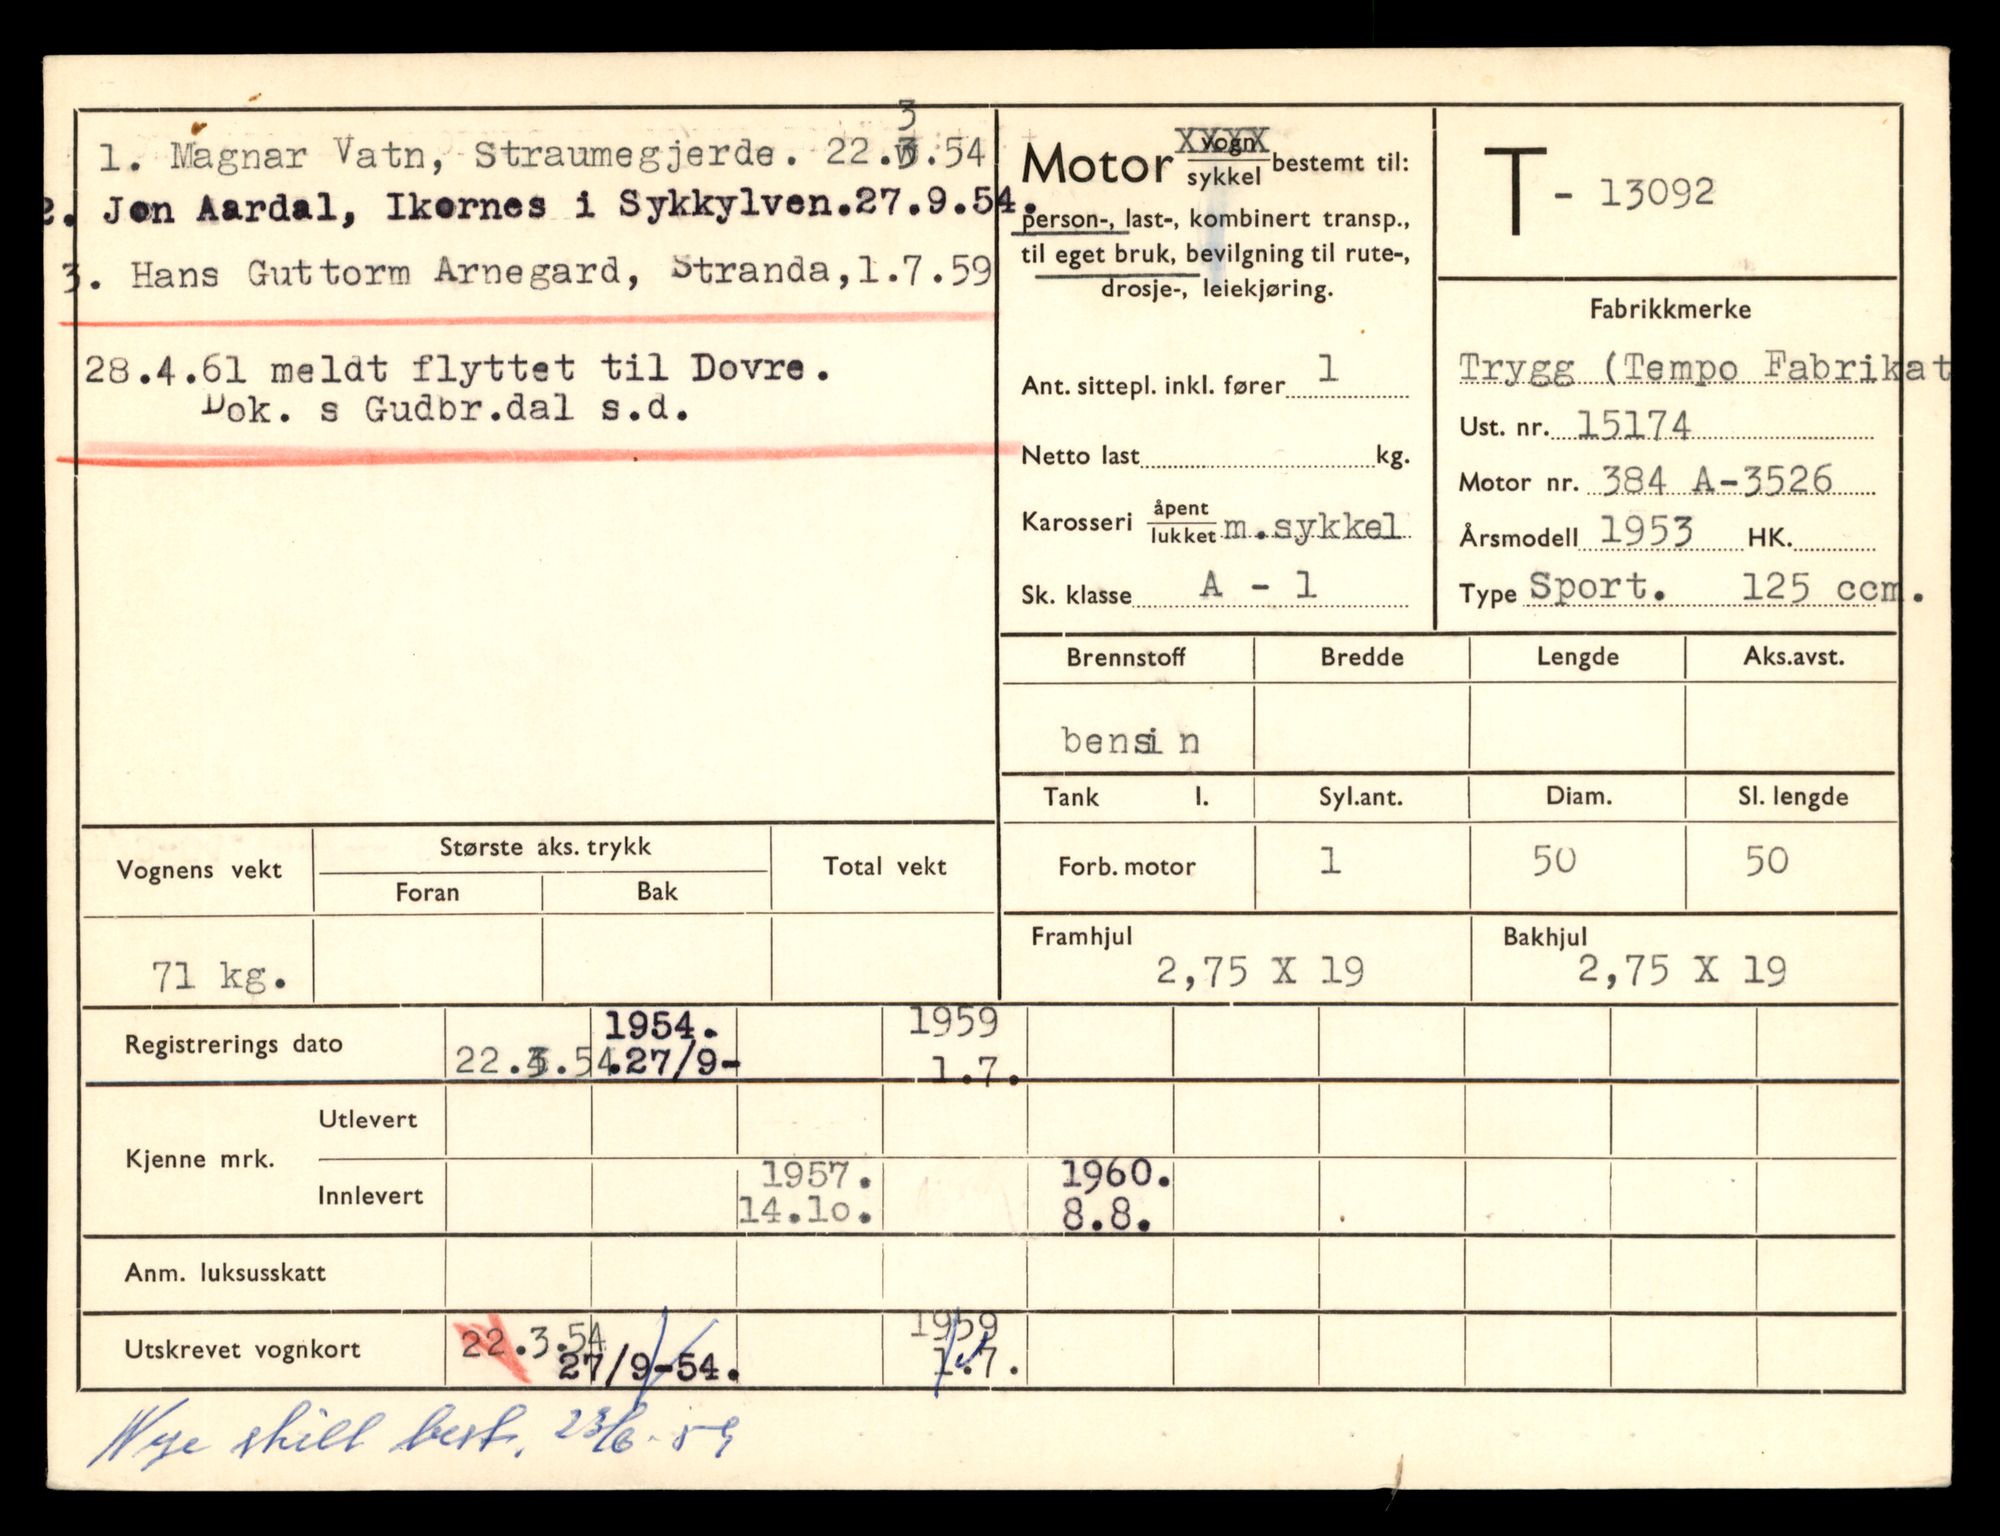 1. Magnar Vatn, Straumegjerde. 22.3.54
2. Jon Aardal, Ikornes i Sykkylven.27.9.54.
3. Hans Guttorm Arnegard, Stranda,1.7.59
28.4.61 meldt flyttet til Dovre.
Dok. s Gudbr.dal s.d.
Motor vogn/sykkel bestemt til:
person-, last-, kombinert transp.,
til eget bruk, bevilgning til rute-,
drosje-, leiekjøring.
Ant. sittepl. inkl. fører 1
Netto last kg.
Karosseri åpent/lukket m.sykkel
Sk. klasse A - 1
T - 13092
Fabrikkmerke
Trygg (Tempo Fabrikat
Ust. nr. 15174
Motor nr. 384 A-3526
Årsmodell 1953 HK.
Type Sport. 125 ccm.
Brennstoff Bredde Lengde Aks.avst.
bensin
Tank l. Syl.ant. Diam. Sl. lengde
Forb. motor 1 50 50
Framhjul Bakhjul
2,75 X 19 2,75 X 19
Vognens vekt Største aks. trykk Total vekt
Foran Bak
71 kg.
1954. 1959
Registrerings dato 22.3.54 .27/9- 1.7.
Utlevert
Kjenne mrk.
1957. 1960.
Innlevert 14.10. 8.8.
Anm. luksusskatt
1959
Utskrevet vognkort 22.3.54 27/9-54. 1.7.
Nye skilt best. 23/6-59